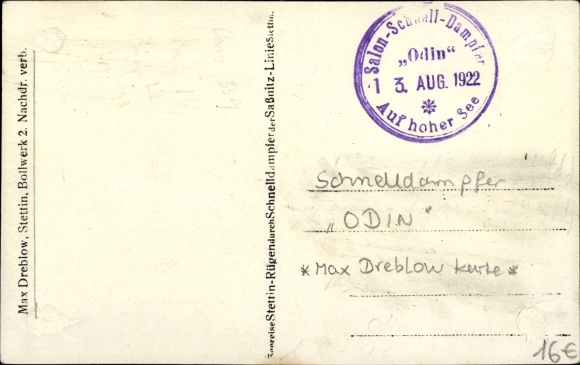 Max Dreblow, Stettin, Bollwerk 2. Nachdr. verb.
Seereise Stettin-Rügen durch Schnelldampfer der Saßnitz-Linie Stettin.
Salon-Schnell-Dampfer
„Odin“
1 3. AUG. 1922
Auf hoher See
Schnelldampfer
„ODIN"
*Max Dreblow Karte*
16€